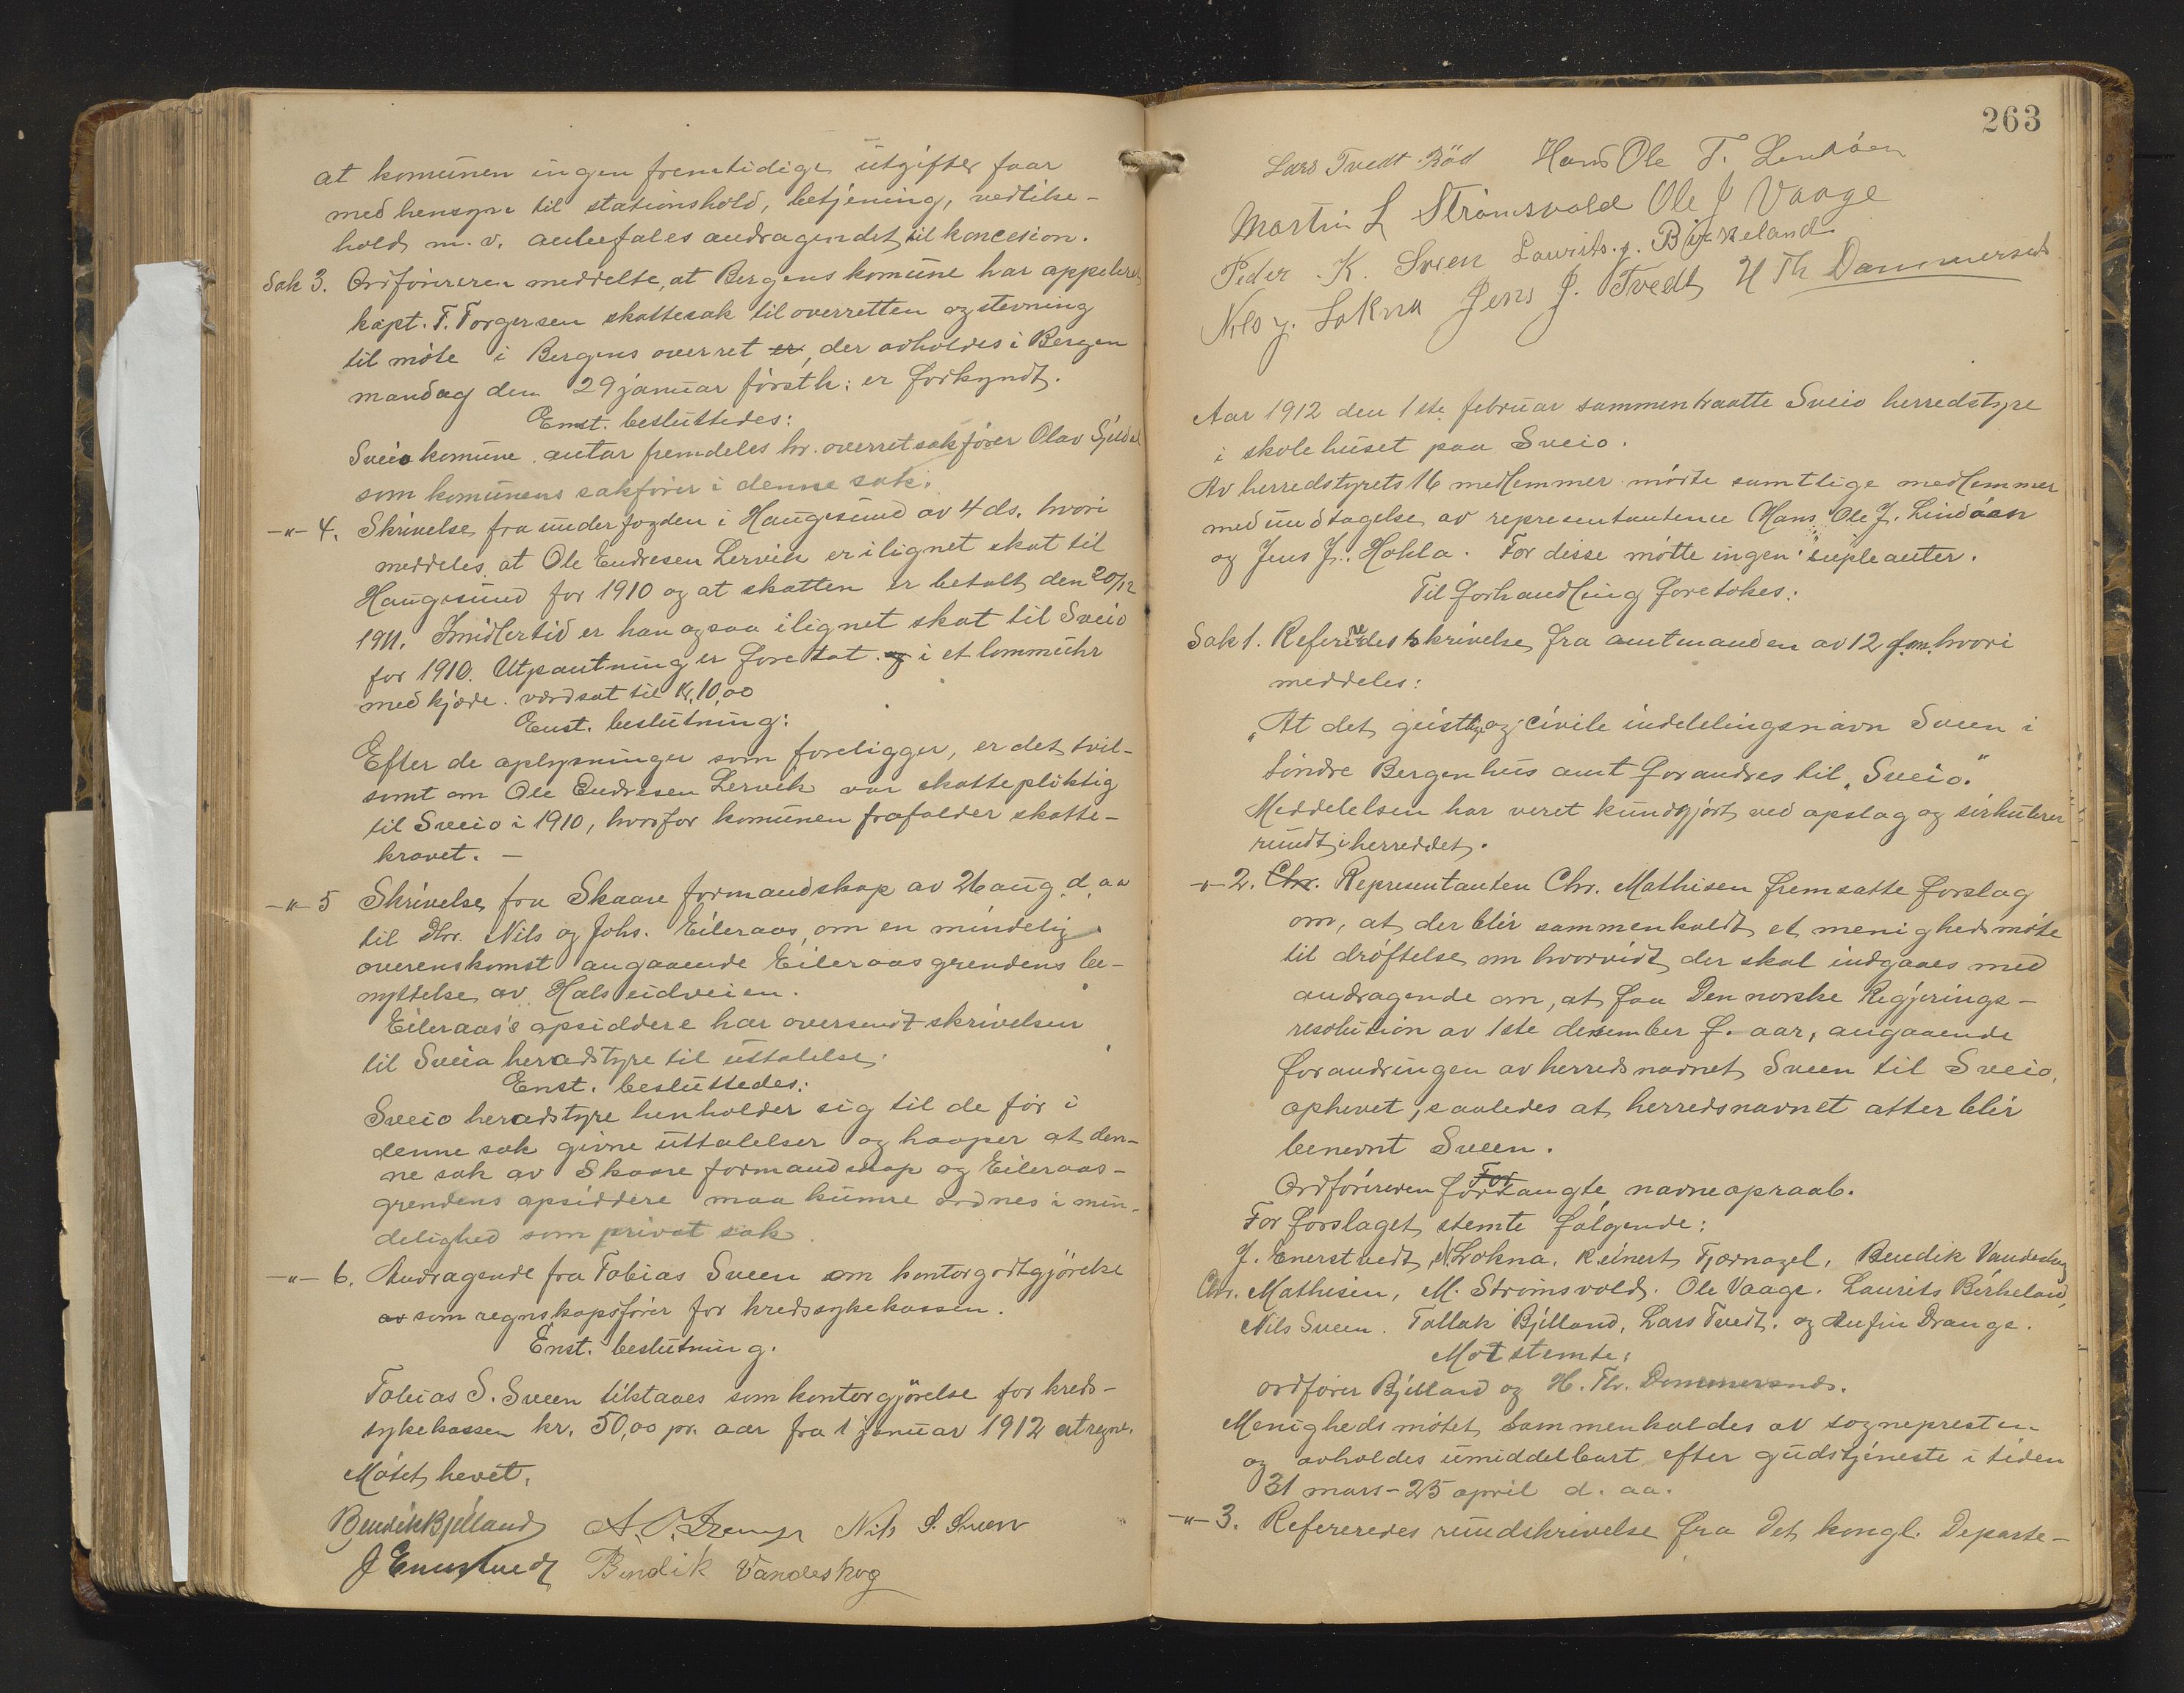 at komunen ingen fremtidige utgifter faar
med hensyn til stationshold, betjening, vedlike-
hold m. v. anbefales andragendet til koncesion.
Sak 3. Ordföreren meddelte, at Bergens komune har appeleret
kapt. T. Torgersen skattesak til overretten og stevning
til möte i Bergens overret er, der avholdes i Bergen
mandag den 29 januar förstk: er forkyndt.
Enst. besluttedes:
Sveio komune antar fremdeles hr. overretsakförer Olav
som komunens sakförer i denne sak.
-"- 4. Skrivelse fra underfogden i Haugesund av 4 ds. hvori
meddeles at Ole Endresen Lervik er ilignet skat til
Haugesund for 1910 og at skatten er betalt den 20/12
1911. Imidlertid er han ogsaa ilignet skat til Sveio
for 1910. Utpantning er foretat og i et lommeuhr
med kjæde værdsat til Kr. 10,00
Enst. beslutning:
Efter de oplysninger som foreligger, er det tvil-
somt om Ole Endresen Lervik var skattepliktig
til Sveio i 1910, hvorfor komunen frafalder skatte-
kravet. -
-"- 5 Skrivelse fra Skaare formandskap av 26 aug d. aa
til Dhr. Nils og Johs. Eileraas, om en mindelig
overenskomst angaaende Eileraasgrendens be-
nyttelse av Halseidveien.
Eileraas's opsiddere har oversendt skrivelsen
til Sveio heradstyre til uttalelse.
Enst. besluttedes:
Sveio heradstyre henholder sig til de för i
denne sak givne uttalelser og haaper at den-
ne sak av Skaare formandskap og Eileraas-
grendens opsiddere maa kunne ordnes i min-
delighed som privat sak.
-"- 6. Andragende fra Tobias Sveen om kontorgodtgjörelse
av som regnskapsförer for kredssykekassen.
Enst. beslutning.
Tobias S. Sveen tilstaaes som kontorgjörelse for kreds-
sykekassen kr. 50,00 pr. aar fra 1 januar 1912 at regne.
Mötet hevet.
Bendik Bjelland A. O. Drange Nils S. Sveen
J Enerstvedt Bendik Vandeskog
263
Lars Tvedt Röd Hans Ole T. Lendöen
Martin L Strömsvold Ole J Vaage
Peder K. Sveen Laurits J. Birkeland
Nils J. Lokna Jens J. Tvedt H Th Dommersnes
Aar 1912 den 1ste februar sammentraatte Sveio herredstyre
i skolehuset paa Sveio.
Av herredstyrets 16 medlemmer mötte samtlige medlemmer
med undtagelse av representantene Hans Ole J. Lindöen
og Jens J. Hokla. For disse mötte ingen supleanter.
Til forhandling foretokes:
Sak 1. Refereredes skrivelse fra amtmanden av 12 f.m. hvori
meddeles:
"At det geistlige og civile inddelingsnavn Sveen i
söndre Bergenhus amt forandres til "Sveio."
Meddelelsen har veret kundgjort ved opslag og sirkulerer
rundt i herreddet.
-"- 2. Chr. Representanten Chr. Mathisen fremsatte forslag
om, at der blir sammenkaldt et menighedsmöte
til dröftelse om hvorvidt der skal indgaaes med
andragende om, at faa Den norske Regjerings-
resolution av 1ste desember f. aar, angaaende
forandringen av herredsnavnet Sveen til Sveio,
ophevet, saaledes at herredsnavnet atter blir
benevnt Sveen.
Ordföreren forlangte navneopraab.
For forslaget stemte følgende:
J. Enerstvedt, N. Lokna, Reinert Tjernagel, Bendik Vandeskog
Chr. Mathisen, M. Strömsvold, Ole Vaage, Laurits Birkeland,
Nils Sveen, Tollak Bjelland, Lars Tvedt, og Anfin Drange.
Mot stemte:
ordförer Bjelland og H. Th. Dommersnes.
Menighedsmötet sammenkaldes av sognepresten
og avholdes umiddelbart efter gudstjeneste i tiden
31 mars - 25 april d. aa.
-"- 3. Refereredes rundskrivelse fra Det kongl. Departe-